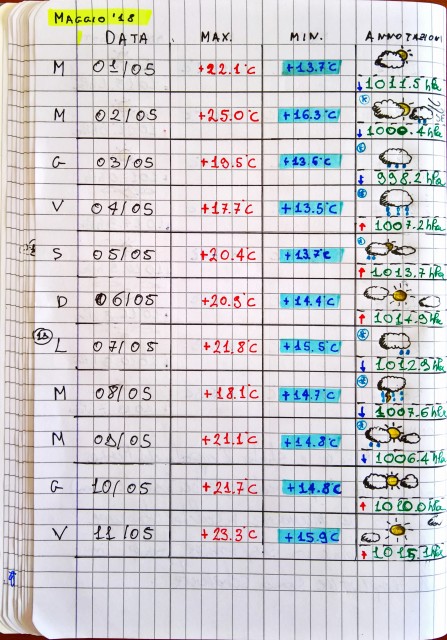 MAGGIO '18
DATA MAX. MIN. ANNOTAZIONI
M 01/05 +22.1°C +13.7°C ↓1011.5hPa
M 02/05 +25.0°C +16.3°C ↓1000.4hPa
G 03/05 +18.5°C +13.6°C ↓998.2hPa
V 04/05 +17.7°C +13.5°C ↑1007.2hPa
S 05/05 +20.4°C +13.7°C ↑1013.7hPa
D 06/05 +14.4°C ↑1014.9hPa
L 07/05 +21.8°C +15.5°C ↓1012.9hPa
M 08/05 +18.1°C +14.7°C ↓1007.6hPa
M 09/05 +21.1°C +14.8°C ↓1006.4hPa
G 10/05 +21.7°C +14.8°C ↑1010.0hPa
V 11/05 +23.3°C +15.9°C ↑1015.1hPa